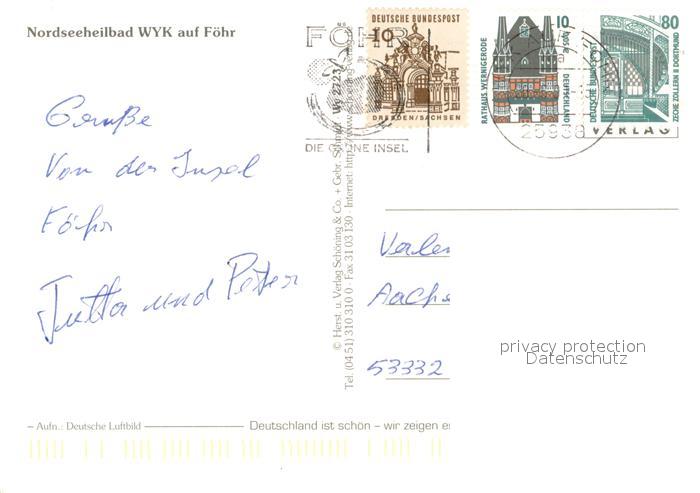 Nordseeheilbad WYK auf Föhr
Gruße
Von der Insel
Föhr
Jutta und Peter
FÖHR
DIE GRÜNE INSEL
DEUTSCHE BUNDESPOST
10
DRESDEN/SACHSEN
RATHAUS WERNIGERODE
10
DEUTSCHLAND
80
DEUTSCHE BUNDESPOST
ZECHE ZOLLERN II DORTMUND
25938
VERLAG
© Herst. u. Verlag Schöning & Co. + Gebr. Schmidt
Tel. (04 51) 310 310 0 · Fax 31 03 130 · Internet: http://www.
53332
privacy protection
Datenschutz
– Aufn.: Deutsche Luftbild
Deutschland ist schön – wir zeigen es